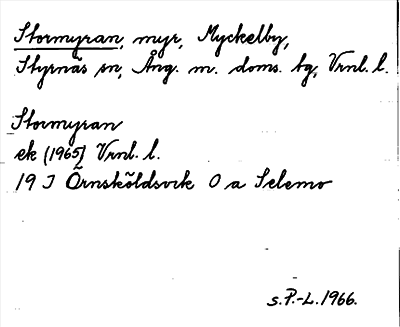 Stormyran, myr, Myckelby,
Styrnäs sn, Ång. m. doms. tg, Vrnl. l.
Stormyran
ek (1965) Vrnl. l.
19 J Örnsköldsvik O a Selemo
s. P.-L. 1966.